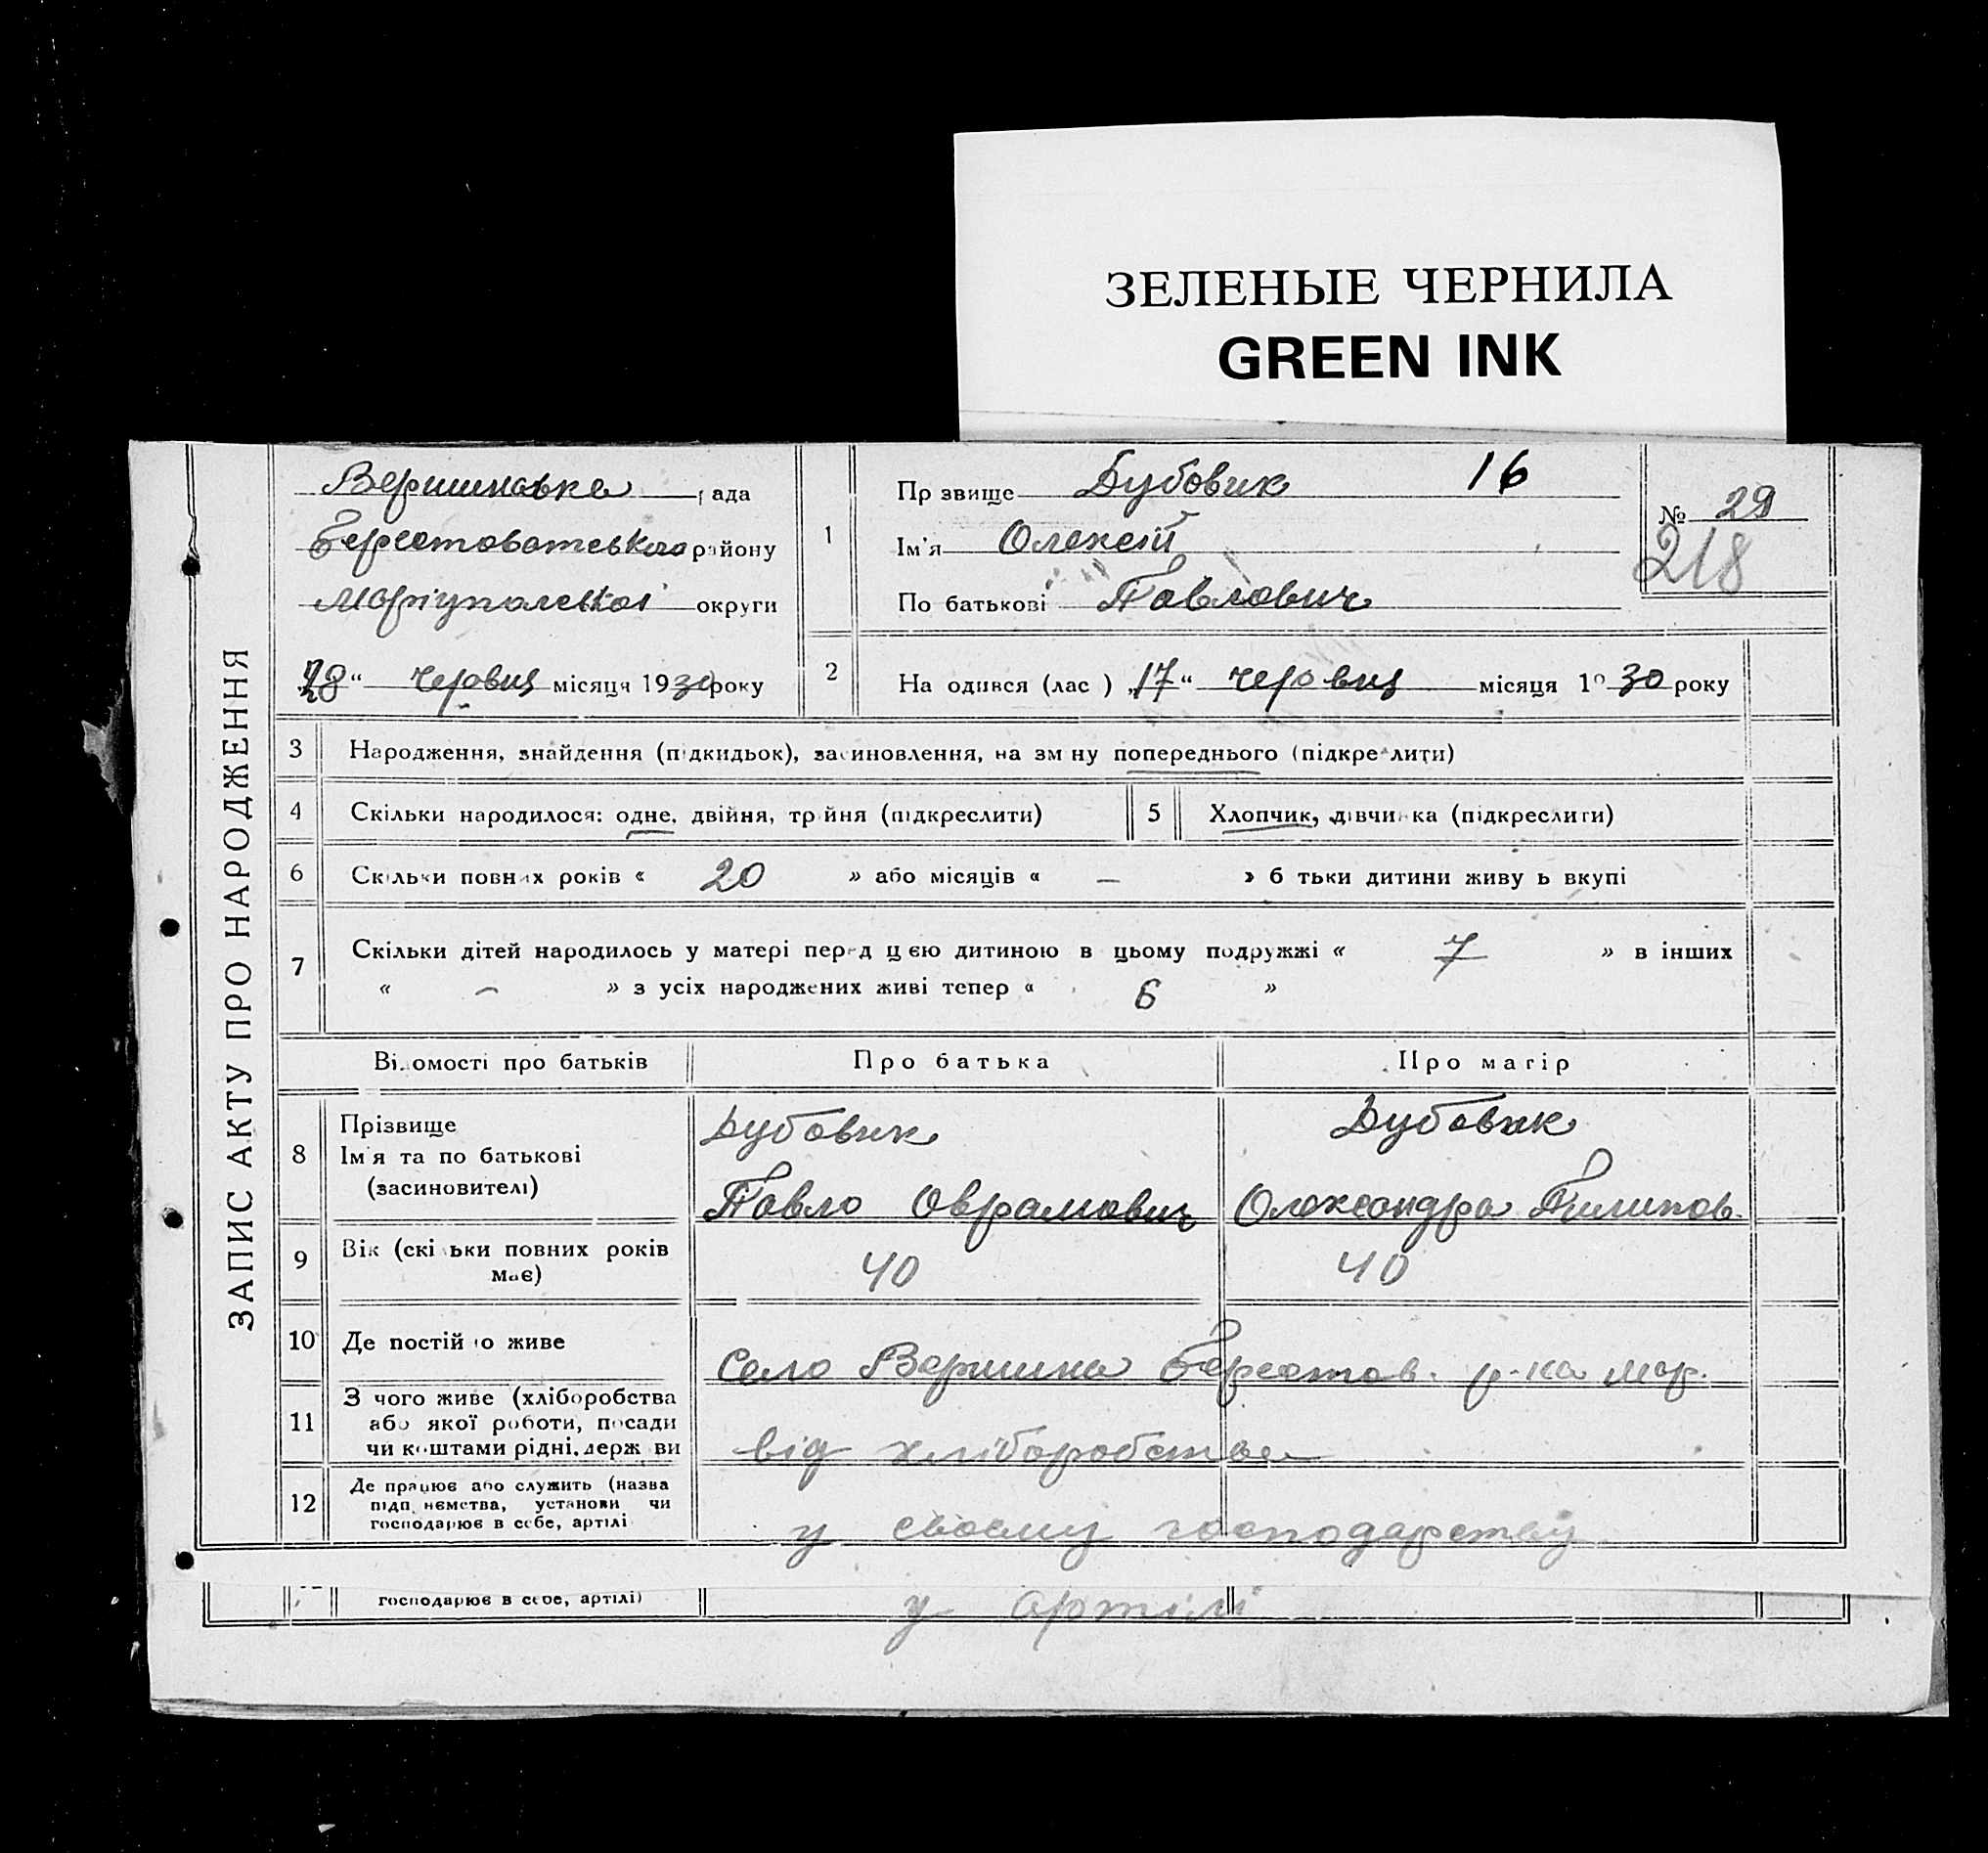 ЗЕЛЕНЫЕ ЧЕРНИЛА
GREEN INK
ЗАПИС АКТУ ПРО НАРОДЖЕННЯ
Вершинська рада
Берестоватського району
Маріупольської округи
28 " червня місяця 1930 року
1
Прзвище Дубовик 16
Ім'я Олексій
По батькові Павлович
№ 29
218
2 На одився (лас ) „17" червня місяця 19 30 року
3 Народження, знайдення (підкидьок), засиновлення, на зм ну попереднього (підкреслити)
4 Скільки народилося: одне, двійня, трійня (підкреслити)
5 Хлопчик, дівчинка (підкреслити)
6 Скільки повних років « 20 » або місяців « — » б тьки дитини живу ь вкупі
7 Скільки дітей народилось у матері перед цією дитиною в цьому подружжі « 7 » в інших
« — » з усіх народжених живі тепер « 6 »
Відомості про батьків Про батька Про матір
8 Прізвище
Ім'я та по батькові
(засиновителі)
Дубовик Дубовик
Павло Оврамович Олександра Пилипов.
9 Вік (скільки повних років має) 40 40
10 Де постійно живе Село Вершина Берестов. р-на мар.
11 З чого живе (хліборобства
або якої роботи, посади
чи коштами рідні, держ ви
від хліборобства
12 Де працює або служить (назва
підп ємства, установи чи
господарює в себе, артілі
у своєму господарству
господарює в себе, артілі) у артілі